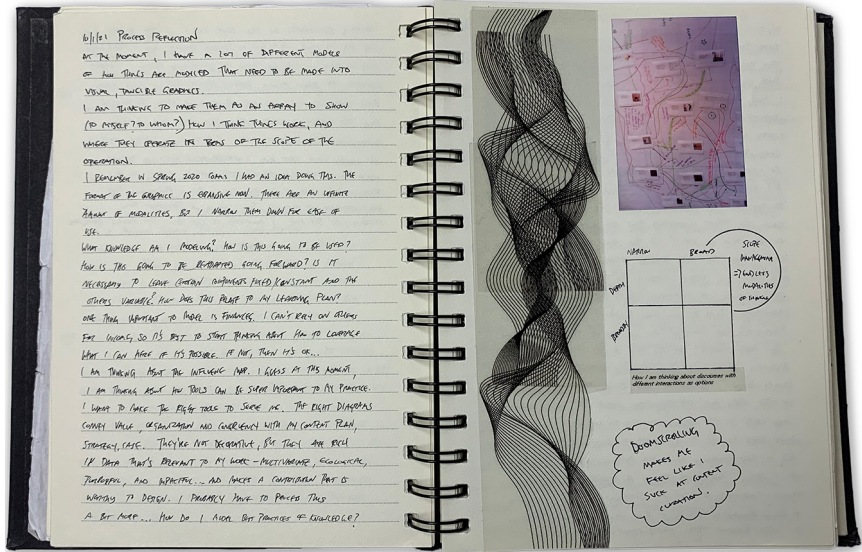 10/1/21 PROCESS REFLECTION
AT THE MOMENT, I HAVE A LOT OF DIFFERENT MODELS
OF HOW THINGS ARE MODELED THAT NEED TO BE MADE INTO
VISUAL, TANGIBLE GRAPHICS.
I AM THINKING TO MAKE THEM AS AN ARRAY TO SHOW
(TO MYSELF? TO WHOM?) HOW I THINK THINGS WORK, AND
WHERE THEY OPERATE IN TERMS OF THE SCOPE OF THE
OPERATION.
I REMEMBER IN SPRING 2020 I HAD AN IDEA DOING THIS. THE
FORMAT OF THE GRAPHICS IS EXPANSIVE NOW. THERE ARE AN INFINITE
AMOUNT OF MODALITIES, BUT I NARROW THEM DOWN FOR EASE OF
USE.
WHAT KNOWLEDGE AM I MODELING? HOW IS THIS GOING TO BE USED?
HOW IS THIS GOING TO BE READAPTED GOING FORWARD? IS IT
NECESSARY TO LEAVE CERTAIN COMPONENTS FIXED/CONSTANT AND THE
OTHERS VARIABLE? HOW DOES THIS RELATE TO MY LEARNING PLAN?
ONE THING IMPORTANT TO MODEL IS FINANCES. I CAN'T RELY ON OTHERS
FOR INCOME, SO IT'S BEST TO START THINKING ABOUT HOW TO LEVERAGE
WHAT I CAN HERE IF IT'S POSSIBLE. IF NOT, THEN IT'S OK...
I AM THINKING ABOUT THE INFLUENCE MAP. I GUESS AT THIS MOMENT,
I AM THINKING ABOUT HOW TOOLS CAN BE SUPER IMPORTANT TO MY PRACTICE.
I WANT TO MAKE THE RIGHT TOOLS TO SERVE ME. THE RIGHT DIAGRAMS
CONVEY VALUE, ORGANIZATION AND CONGRUENCY WITH MY CONTENT PLAN,
STRATEGY, CASE. THEY'RE NOT DECORATIVE, BUT THEY ARE RICH
IN DATA THAT'S RELEVANT TO MY WORK - MULTIVARIATE, ECOLOGICAL,
PURPOSEFUL, AND IMPACTFUL... AND MAKES A CONTRIBUTION THAT IS
WORTHY TO DESIGN. I PROBABLY HAVE TO PROCESS THIS
A BIT MORE... HOW DO I MODEL BEST PRACTICES OF KNOWLEDGE?
NARROW BROAD
DEPTH
SCOPE
MODALITIES
How I am thinking about discourses with
different interactions as options
DOOMSCROLLING
MAKES ME
FEEL LIKE I
SUCK AT CONTENT
CURATION.